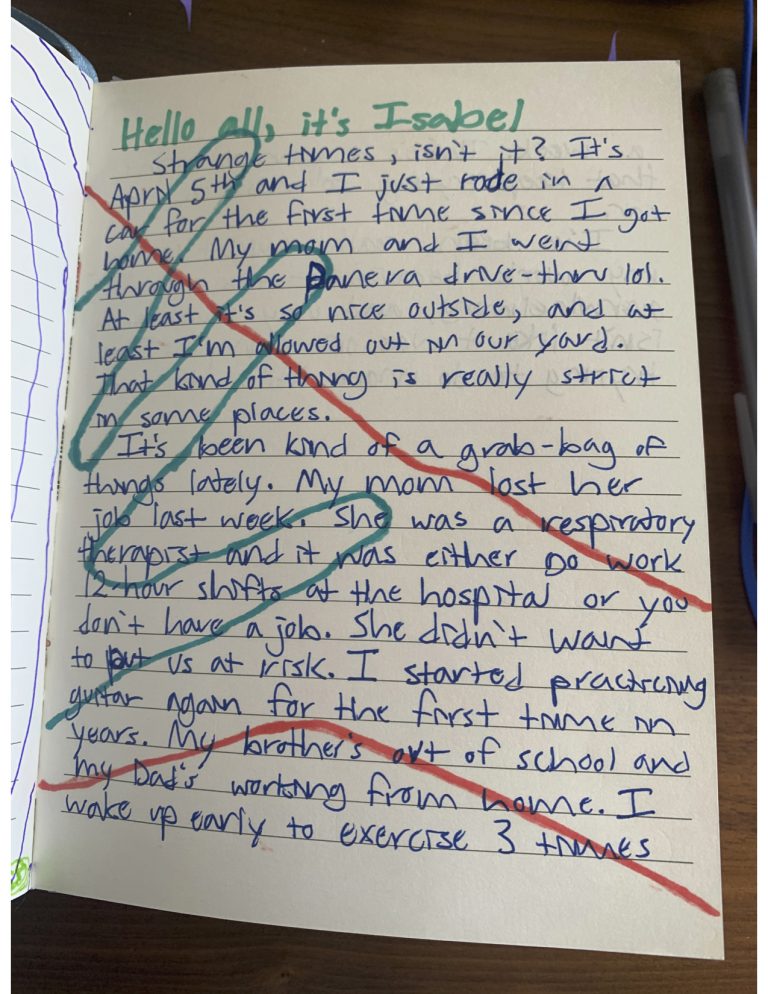 Hello all, it's Isabel
Strange times, isn't it? It's
April 5th and I just rode in a
car for the first time since I got
home. My mom and I went
through the Panera drive-thru lol.
At least it's so nice outside, and at
least I'm allowed out in our yard.
That kind of thing is really strict
in some places.
It's been kind of a grab-bag of
things lately. My mom lost her
job last week. She was a respiratory
therapist and it was either DO work
12-hour shifts at the hospital or you
don't have a job. She didn't want
to put us at risk. I started practicing
guitar again for the first time in
years. My brother's out of school and
my Dad's working from home. I
wake up early to exercise 3 times